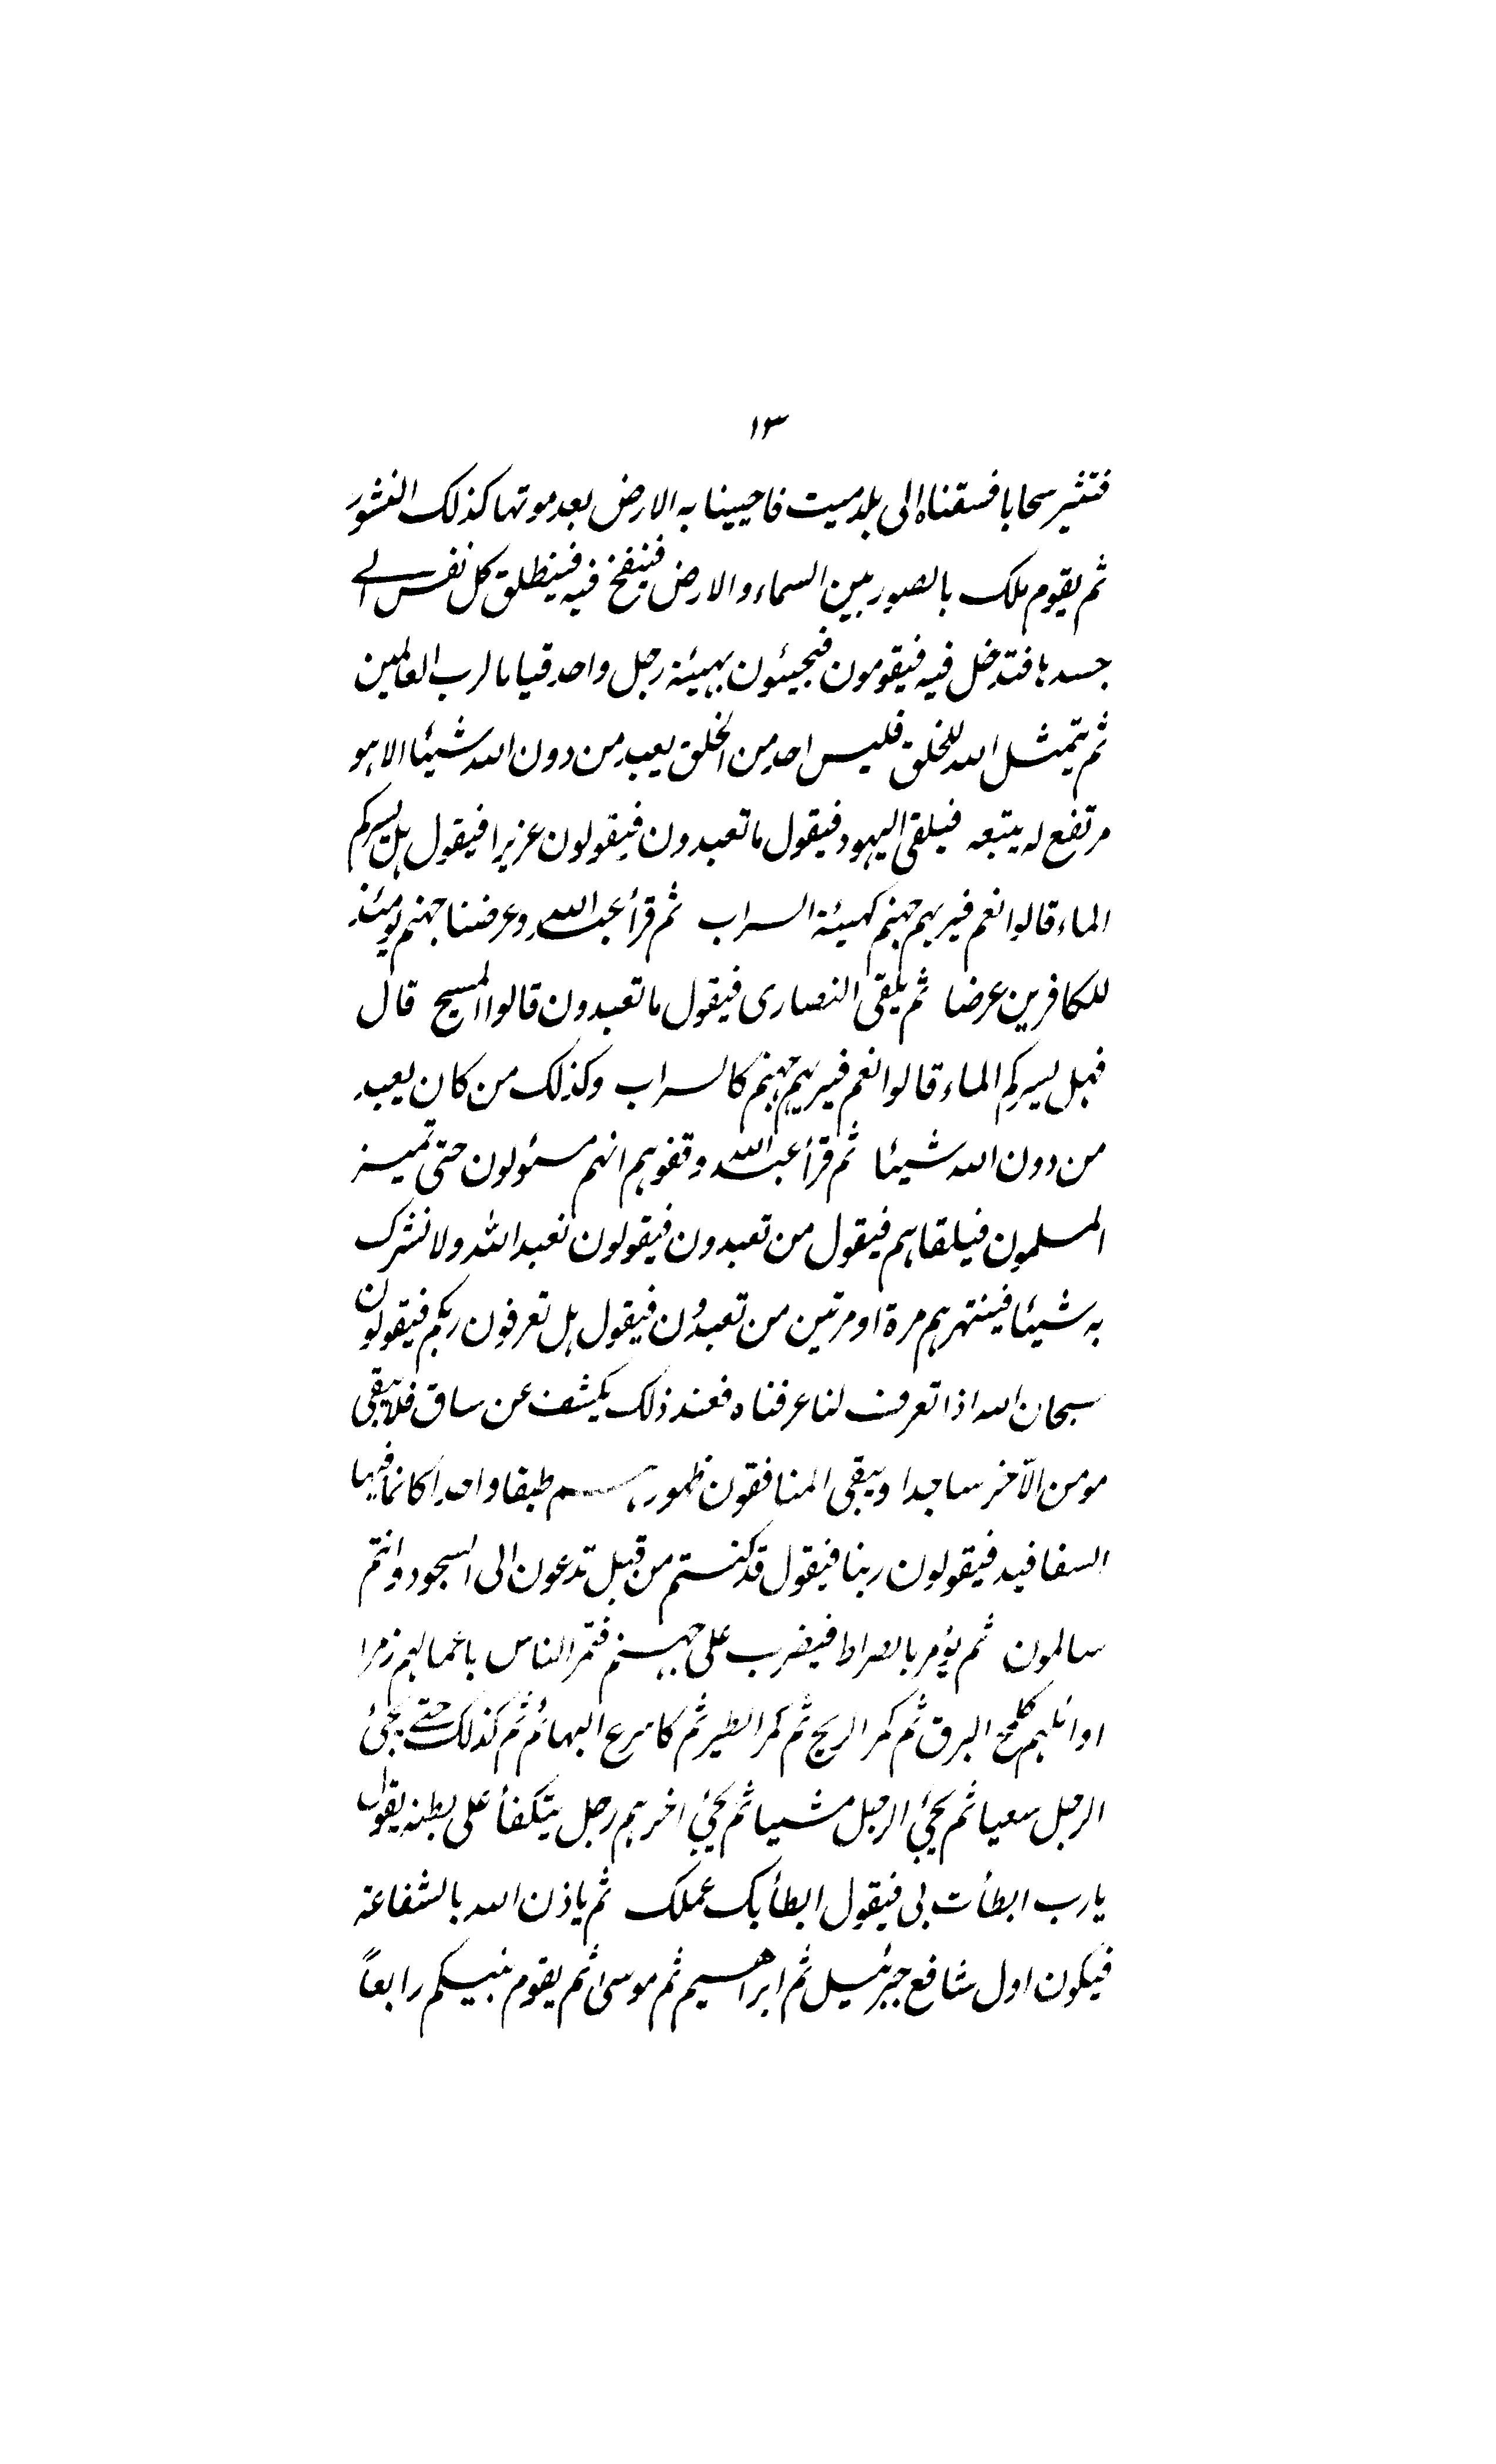 ١٣
فتثير سحابا فسقناه الى بلد ميت فاحيينا به الارض بعد موتها كذلك النشور
ثم يقوم ملك بالصور بين السماء والارض فينفخ فيه فينطلق كل نفس الى
جسدها فتدخل فيه فيقومون فيجيئون بهيئة رجل واحد قياما لرب العالمين
ثم يتمثل الله للخلق فليس احد من الخلق يعبد من دون الله شيئا الا هو
مرتفع له يتبعه فيلقى اليهود فيقول ما تعبدون فيقولون عزيرا فيقول هل يسركم
الماء قالوا نعم فيريهم جهنم كهيئة السراب ثم قرأ عبد الله وعرضنا جهنم يومئذ
للكافرين عرضا ثم يلقى النصارى فيقول ما تعبدون قالوا المسيح قال
فهل يسركم الماء قالوا نعم فيريهم جهنم كالسراب وكذلك من كان يعبد
من دون الله شيئا ثم قرأ عبد الله وقفوهم انهم مسئولون حتى تميز
المسلمون فيلقاهم فيقول من تعبدون فيقولون نعبد الله ولا نشرك
به شيئا فينتهرهم مرة او مرتين من تعبدون فيقول هل تعرفون ربكم فيقولون
سبحان الله اذا تعرف لنا عرفناه فعند ذلك يكشف عن ساق فلا يبقى
مومن الآخر ساجدا ويبقى المنافقون ظهورهم طبقا واحدا كانما فيها
السفافيد فيقولون ربنا فيقول قد كنتم من قبل تدعون الى السجود وانتم
سالمون ثم يؤمر بالصراط فيضرب على جهنم فتمر الناس باعمالهم زمرا
اوائلهم كلمح البرق ثم كمر الريح ثم كمر الطير ثم كاسرع البهائم ثم كذلك حتى يجئ
الرجل سعيا ثم يجئ الرجل مشيا ثم يجئ اخرهم رجل يتكفأ على بطنه يقول
يارب ابطأت بى فيقول ابطأ بك عملك ثم ياذن الله بالشفاعة
فيكون اول شافع جبرئيل ثم ابراهيم ثم موسىٰ ثم يقوم نبيكم رابعاً